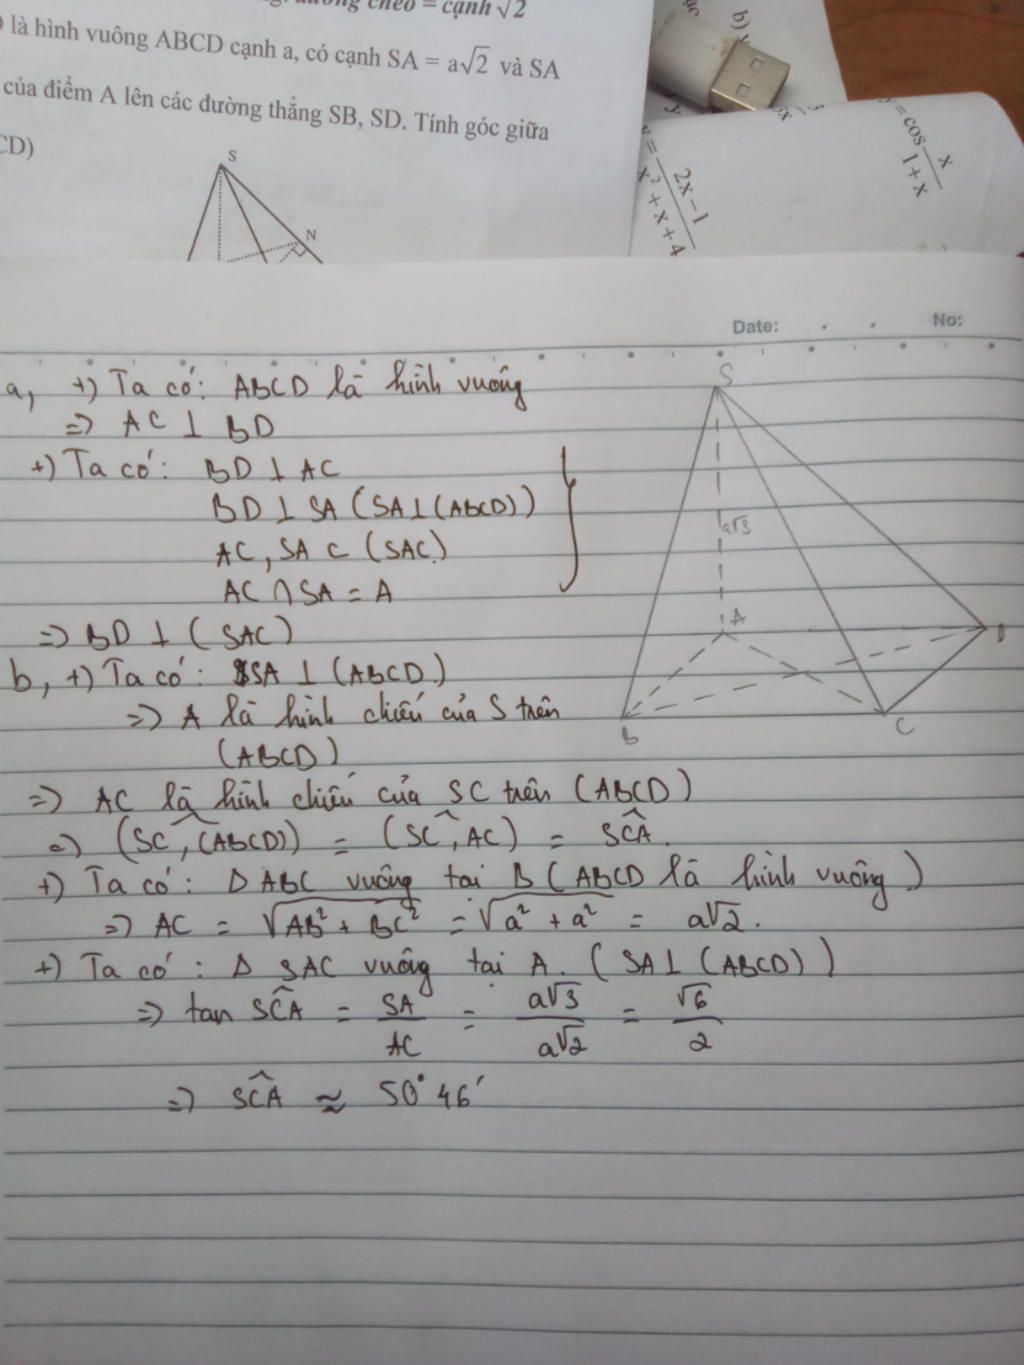 đường chéo = cạnh √2
là hình vuông ABCD cạnh a, có cạnh SA = a√2 và SA
của điểm A lên các đường thẳng SB, SD. Tính góc giữa
CD)
S
N
b)
y = (2x-1)/(x² + x + 4)
y = cos x/(1+x)
Date: No:
a, +) Ta có: ABCD là hình vuông
=> AC ⊥ BD
+) Ta có: BD ⊥ AC
BD ⊥ SA (SA⊥(ABCD))
AC, SA ⊂ (SAC)
AC ∩ SA = A
=> BD ⊥ (SAC)
b, +) Ta có: SA ⊥ (ABCD)
=> A là hình chiếu của S trên
(ABCD)
=> AC là hình chiếu của SC trên (ABCD)
=> (SC, (ABCD)) = (SC, AC) = SCA.
+) Ta có: Δ ABC vuông tại B (ABCD là hình vuông)
=> AC = √(AB² + BC²) = √(a² + a²) = a√2.
+) Ta có: Δ SAC vuông tại A. (SA⊥(ABCD))
=> tan SCA = SA/AC = a√3/a√2 = √6/2
=> SCA ≈ 50°46'
S
a√3
A
D
B
C